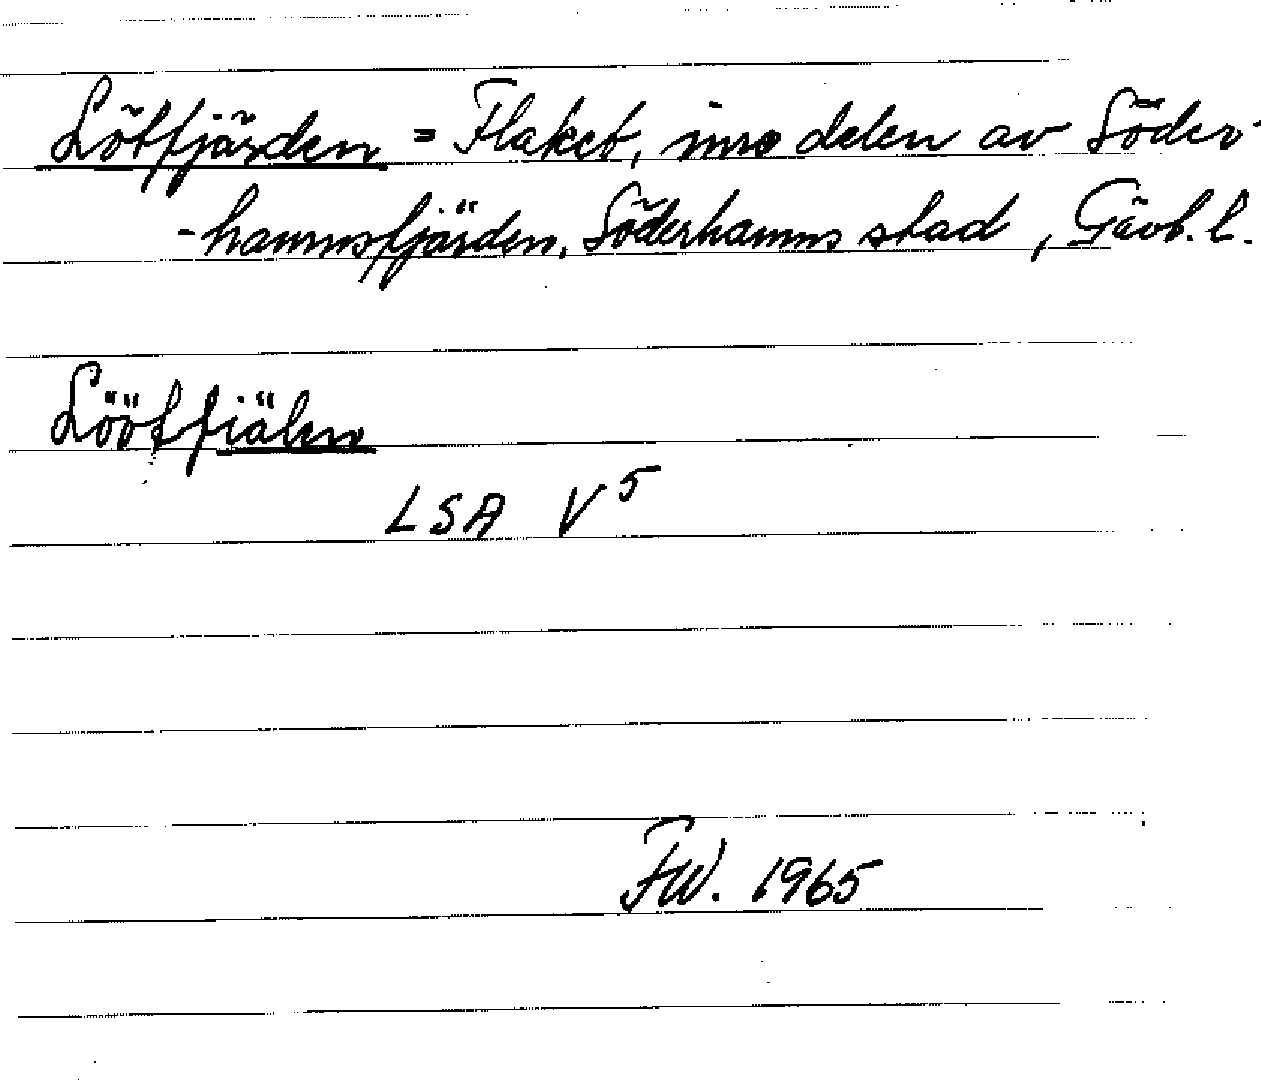 Lötfjärden = Flaket, inre delen av Söder-
-hamnsfjärden, Söderhamns stad, Gävl. l.
Löötfiälen
LSA V5
FW. 1965